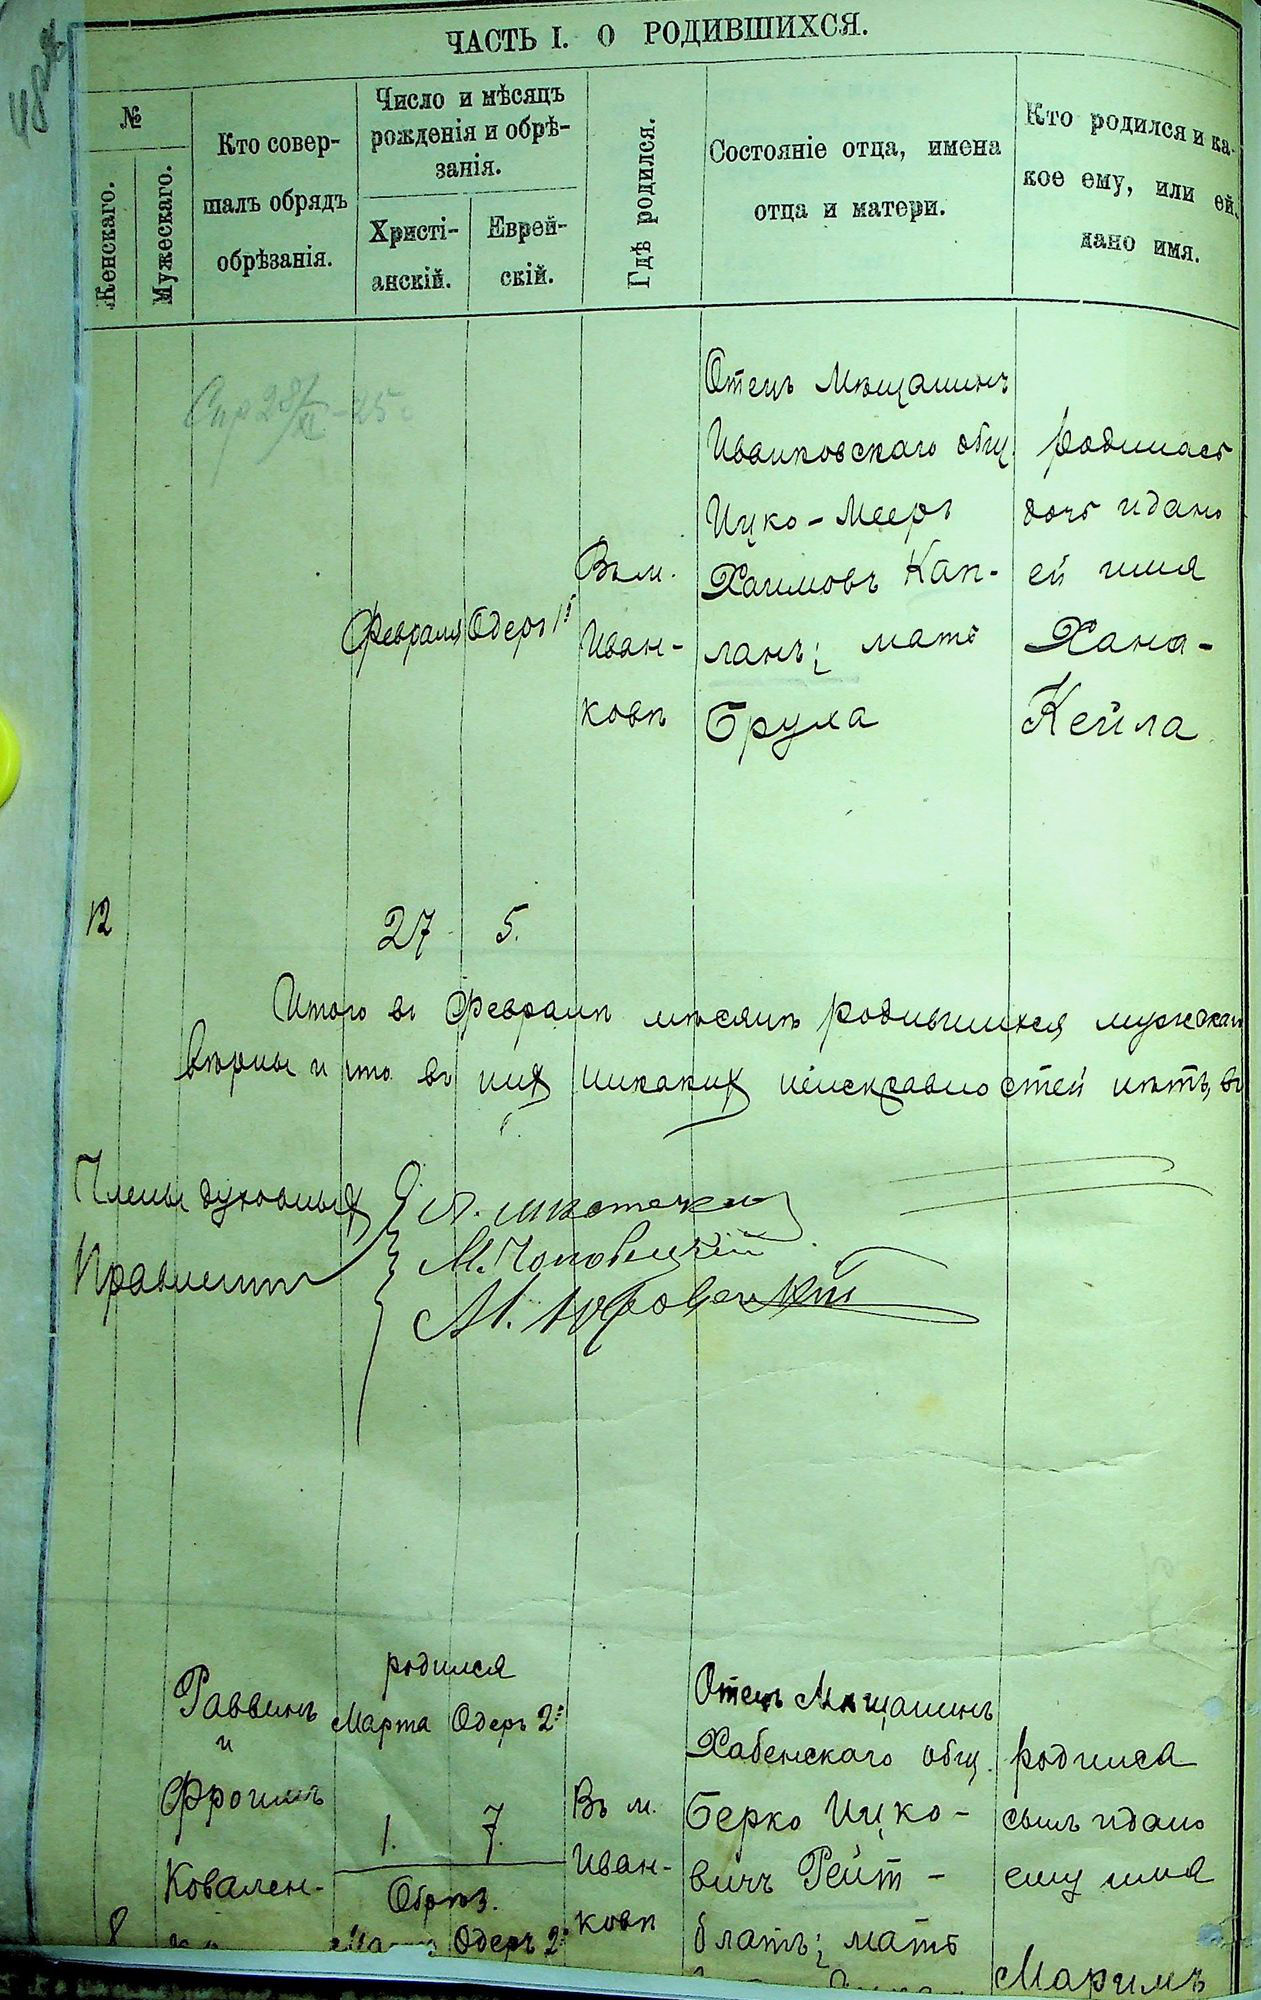 48
ЧАСТЬ I. О РОДИВШИХСЯ.
№
Женскаго.
Мужескаго.
Кто совер-
шалъ обрядъ
обрѣзанія.
Число и мѣсяцъ
рожденія и обрѣ-
занія.
Христі-
анскій.
Еврей-
скій.
Гдѣ родился.
Состояніе отца, имена
отца и матери.
Кто родился и ка-
кое ему, или ей,
дано имя.
Спр 28/XI - 25 г
12
Февраля
27
Одеръ 1й
5.
Въ м.
Иван-
ковѣ
Отецъ Мѣщанинъ
Иванковскаго общ.
Ицко-Мееръ
Хаимовъ Кап-
ланъ; мать
Бруха
родилась
дочь и дано
ей имя
Хана-
Кейла
Итого въ Февралѣ мѣсяцѣ родившихся мужскаго
вѣрны и что въ нихъ никакихъ неисправностей нѣтъ, въ
Члены духовныхъ
Правленій
М.
М.
8
Раввинъ
и
Фроимъ
Ковален-
родился
Марта Одеръ 2й
1. 7.
Обрѣз.
Марта Одеръ 2й
Въ м.
Иван-
ковѣ
Отецъ Мѣщанинъ
Хабенскаго общ.
Берко Ицко-
вичъ Рейт-
блатъ; мать
родился
сынъ и дано
ему имя
Маримъ